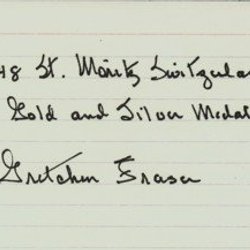 48 St. Moritz Switzerla
Gold and Silver Medal
Gretchen Fraser